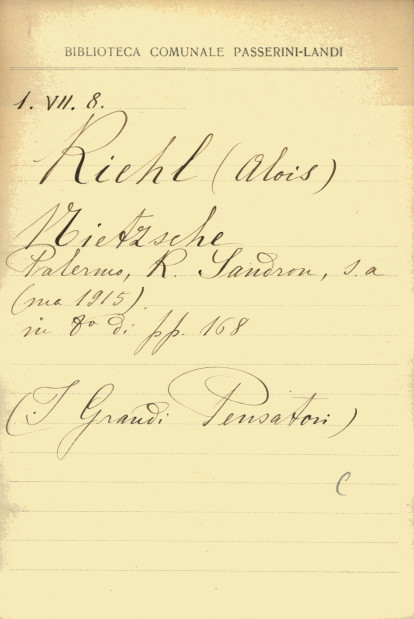 BIBLIOTECA COMUNALE PASSERINI-LANDI
1. VII. 8.
Riehl (Alois)
Nietzsche
Palermo, R. Sandron, s.a
(ma 1915).
in 8° di pp. 168
(I Grandi Pensatori)
C